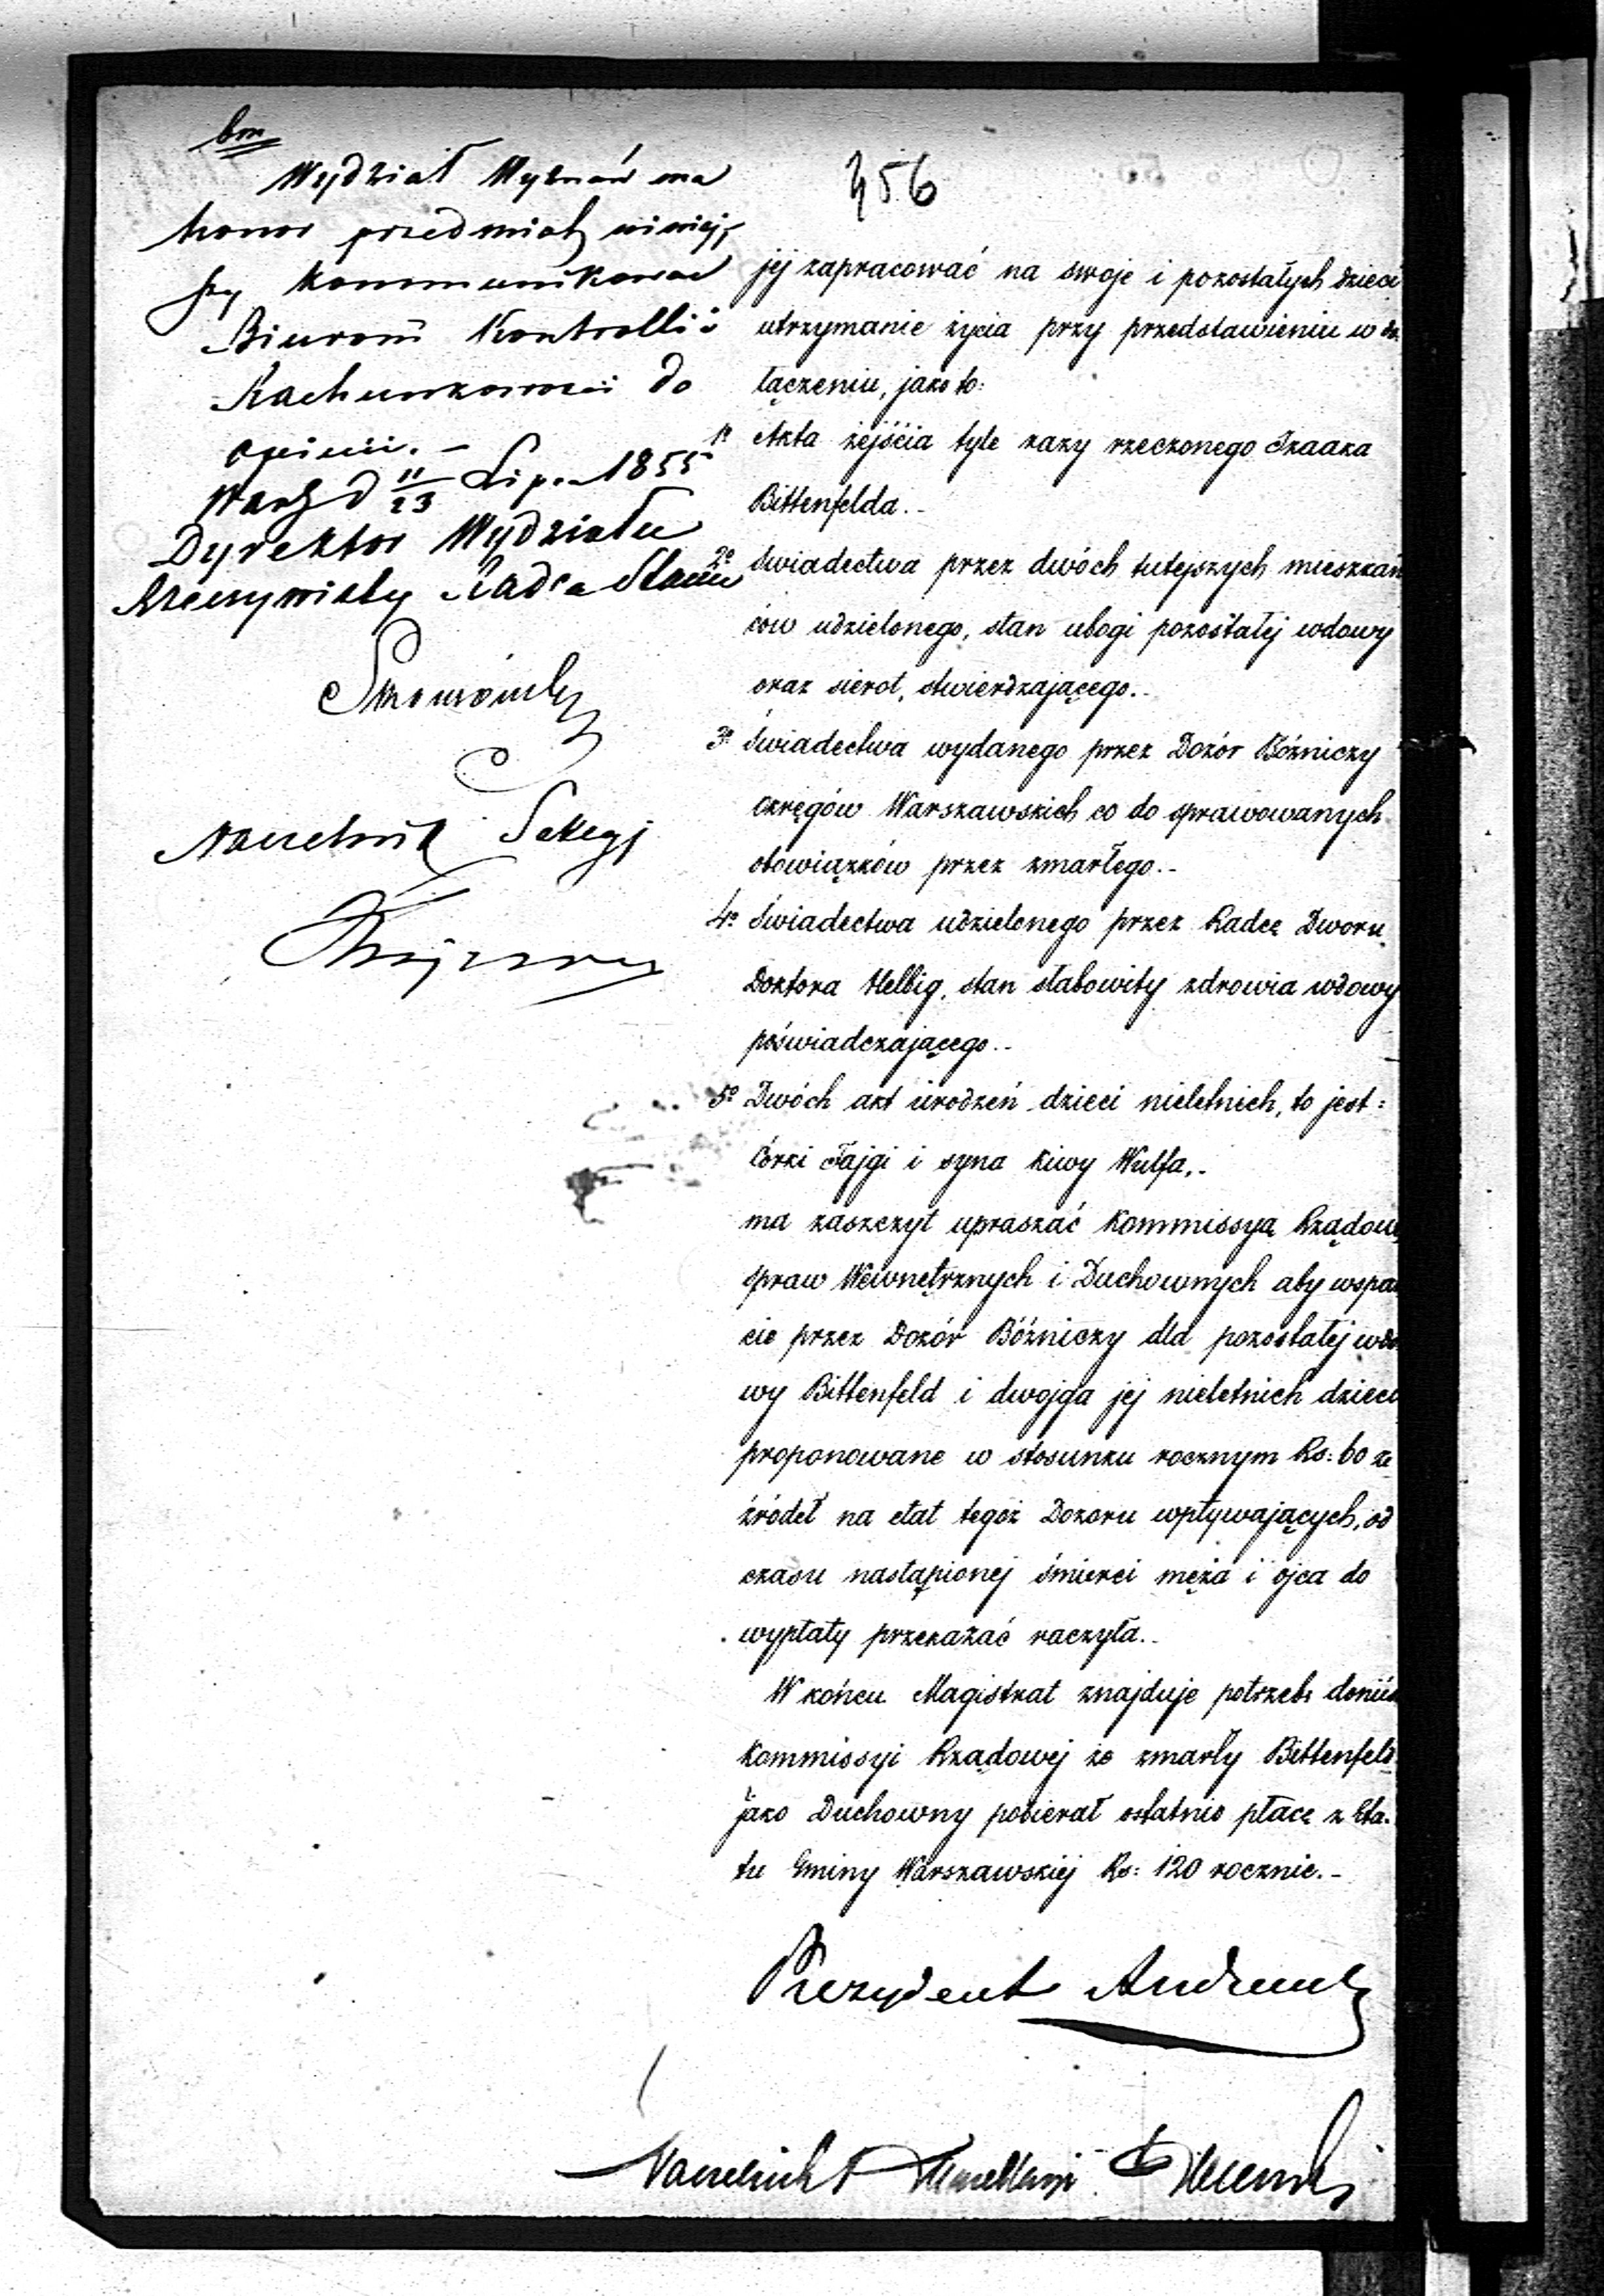 Wydział Wyznań ma
honor przedmiot niniej-
szy kommunikować
Biurom Kontrolli i
Rachunkowości do
opinii. –
Warsz d 11/23 Lipca 1855
Dyrektor Wydziału
Rzeczywisty Radca Stanu
Naczelnik Sekcyi
356
jej zapracować na swoje i pozostałych dzieci
utrzymanie życia przy przedstawieniu w do-
łączeniu, jako to:
1º Akta zejścia tyle razy rzeczonego Izaaka
Bittenfelda.-
2º Swiadectwa przez dwóch tutejszych mieszkań
ców udzielonego, stan ubogi pozostałej wdowy
oraz sierot, stwierdzającego.-
3º Świadectwa wydanego przez Dozór Bóżniczy
Okręgów Warszawskich co do sprawowanych
obowiązków przez zmarłego.-
4º Świadectwa udzielonego przez Radcę Dworu
Doktora Helbig, stan słabowity zdrowia wdowy
poświadczającego.-
5º Dwóch akt urodzeń dzieci nieletnich, to jest:
Córki Fajgi i syna Kiwy Wulfa,-
ma zaszczyt upraszać Kommissyą Rządową
Spraw Wewnętrznych i Duchownych aby wspar
cie przez Dozór Bóżniczy dla pozostałej wdo
wy Bittenfeld i dwojga jej nieletnich dzieci
proponowane w stosunku rocznym Rs: 60 ze
źródeł na etat tegoż Dozoru wpływających, od
czasu nastąpionej śmierci męża i ojca do
wypłaty przekazać raczyła.-
W końcu Magistrat znajduje potrzebę donieś
Kommissyi Rządowej że zmarły Bittenfeld
jako Duchowny pobierał ostatnio płacę z Eta-
tu Gminy Warszawskiej Rs: 120 rocznie.-
Prezydent Andrault
Naczelnik Kancellaryi